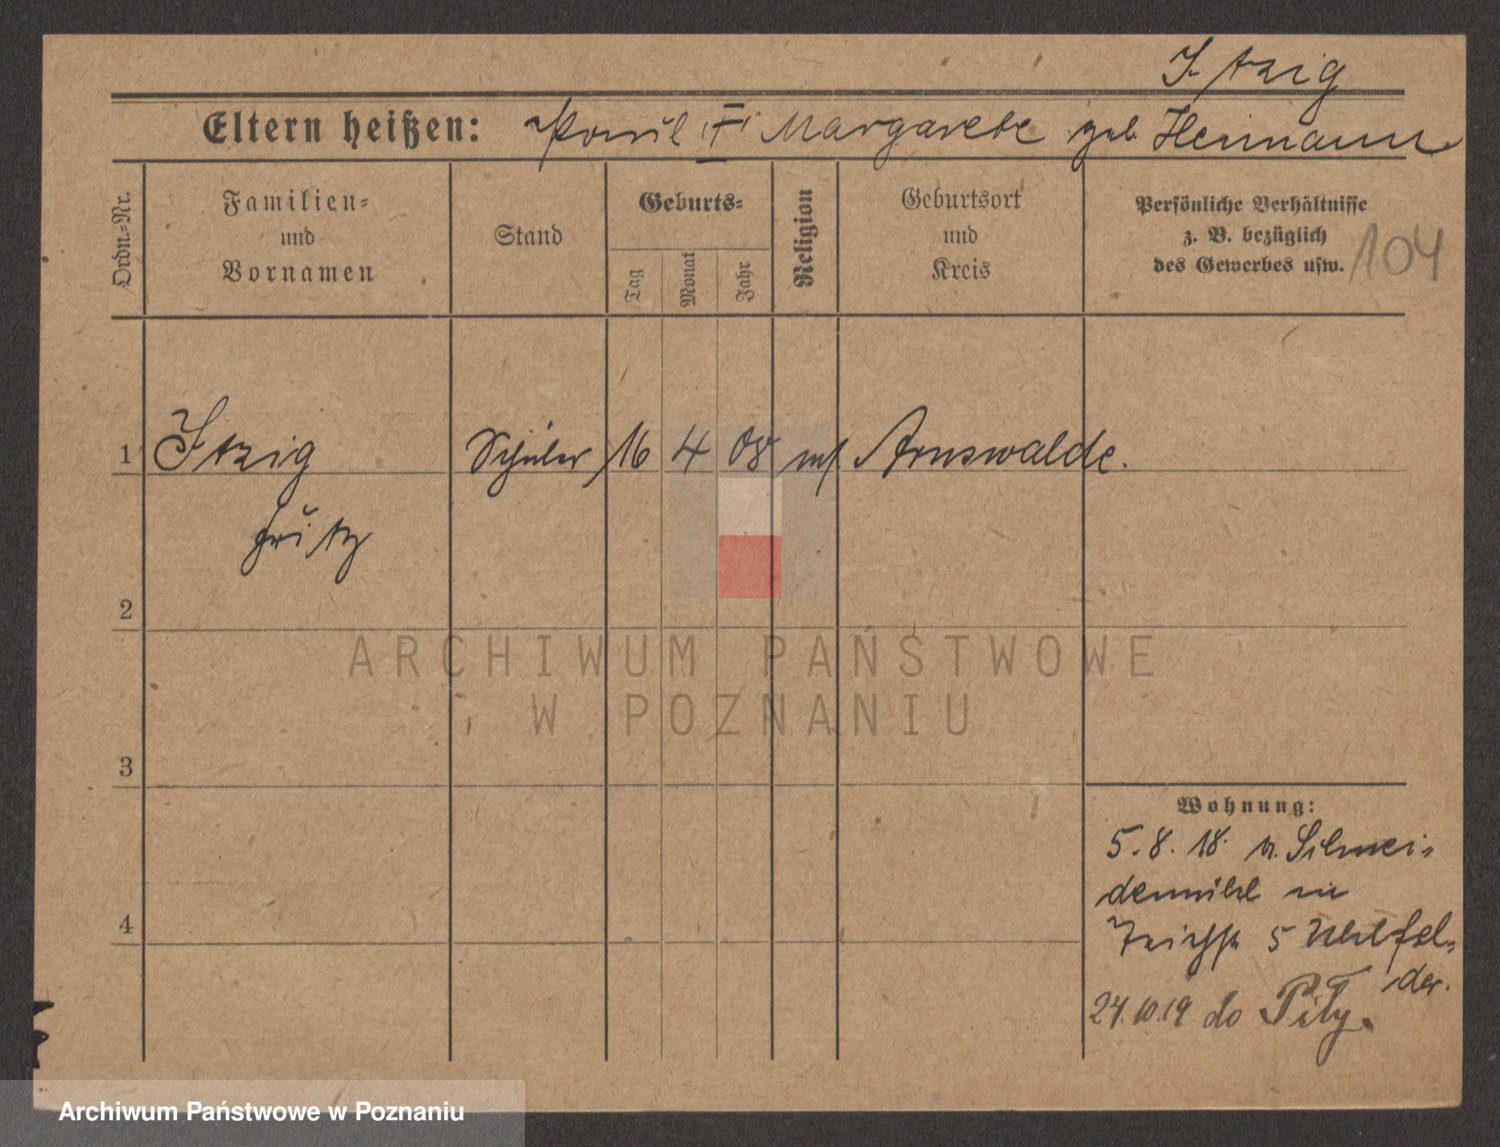 Itzig
Eltern heißen: Paul III Margarete geb. Heimann
Ordn.-Nr.
Familien-
und
Vornamen
Stand
Geburts-
Tag
Monat
Jahr
Religion
Geburtsort
und
Kreis
Persönliche Verhältnisse
z. B. bezüglich
des Gewerbes usw.
104
1 Itzig Schüler 16 4 08 mos Arnswalde.
Fritz
2
3
4
Wohnung:
5.8.18. v. Schnei-
demühl in
5 Uhlfel-
der.
24.10.19 do Piły.
ARCHIWUM PAŃSTWOWE
W POZNANIU
Archiwum Państwowe w Poznaniu